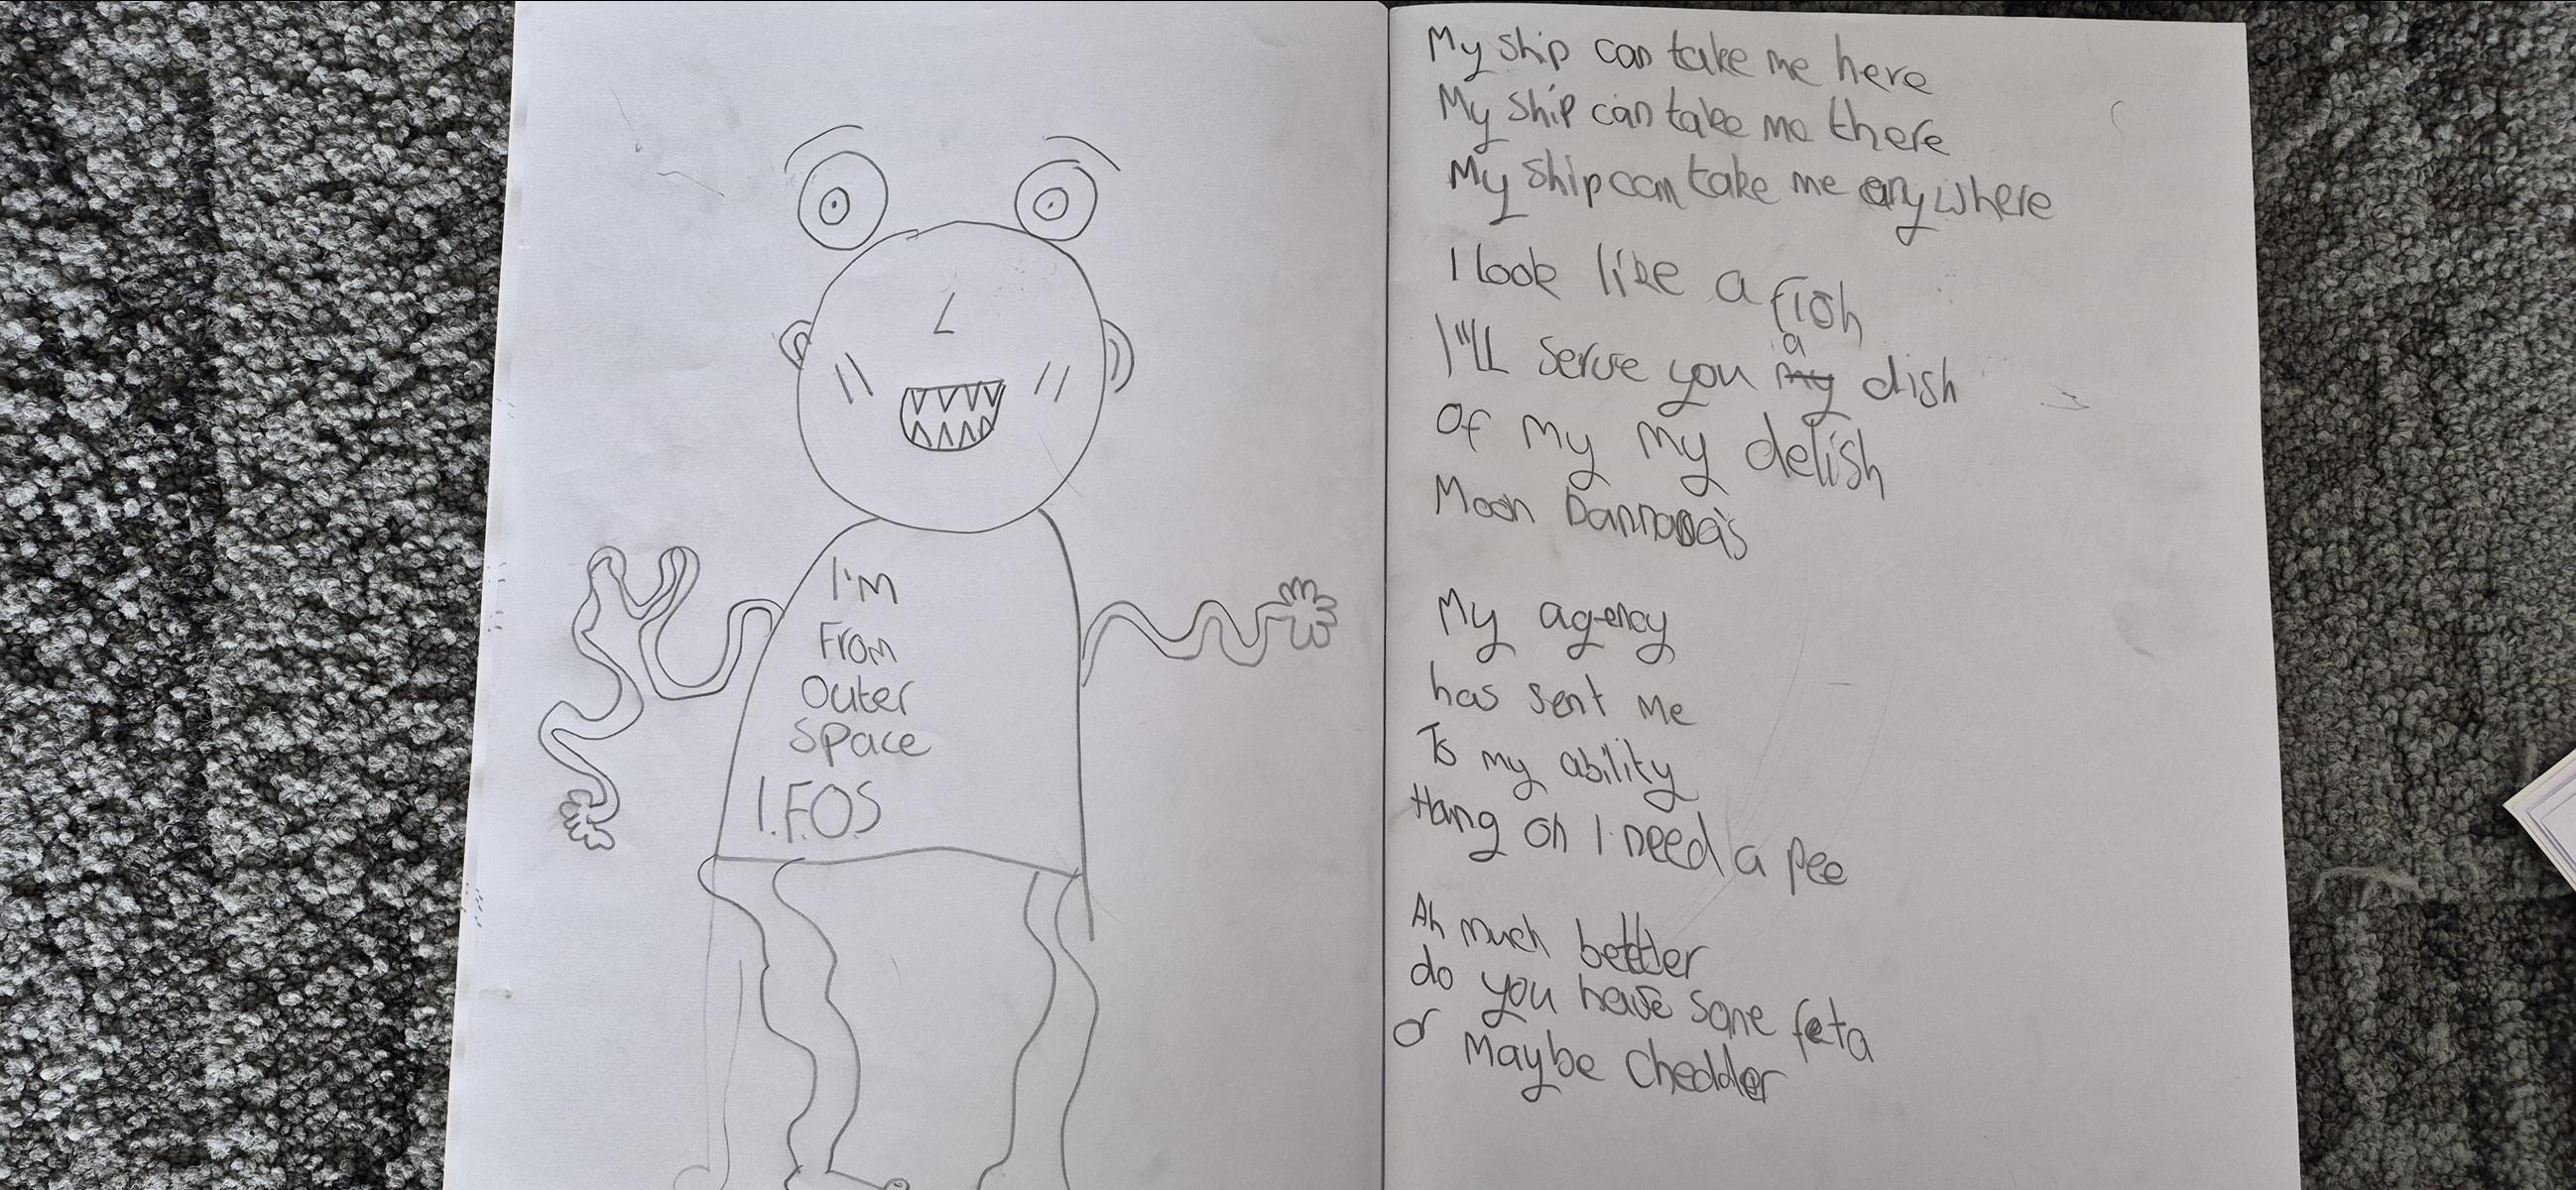 I'm
From
Outer
Space
I.F.O.S
My ship can take me here
My ship can take me there
My ship can take me anywhere
I look like a fish
I'll serve you a dish
Of my my delish
Moon
My agency
has sent me
To my ability
Hang on I need a pee
Ah much bettter
do you have some feta
or Maybe Chedder